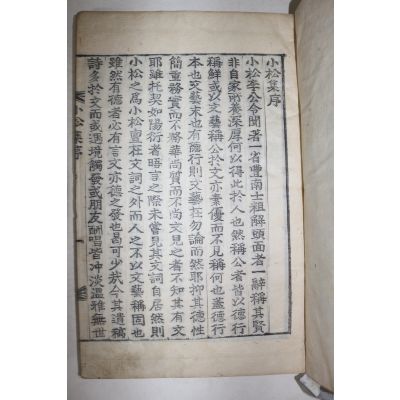 小松集序
小松李公令聞著一省豊南士粗解頭面者一辭稱其賢
非自家所養深厚何以得此於人也然稱公者皆以德行
稱鮮或以文藝稱公於文亦素優而不見稱何也盖德行
本也文藝末也有德行則文藝在勿論而然耶抑其德性
簡重務實而不務華尚質而不尚文見之者不知其有文
耶雖托契如陽衍者晤言之際未嘗見其文詞自居然則
小松之爲小松亶在文詞之外而人之不以文藝稱固也
雖然有德者必有言文亦德之發也曷可少哉今其遺稿
詩多於文而或遇境觸發或朋友酬唱皆冲淡溫雅無世
小松集序